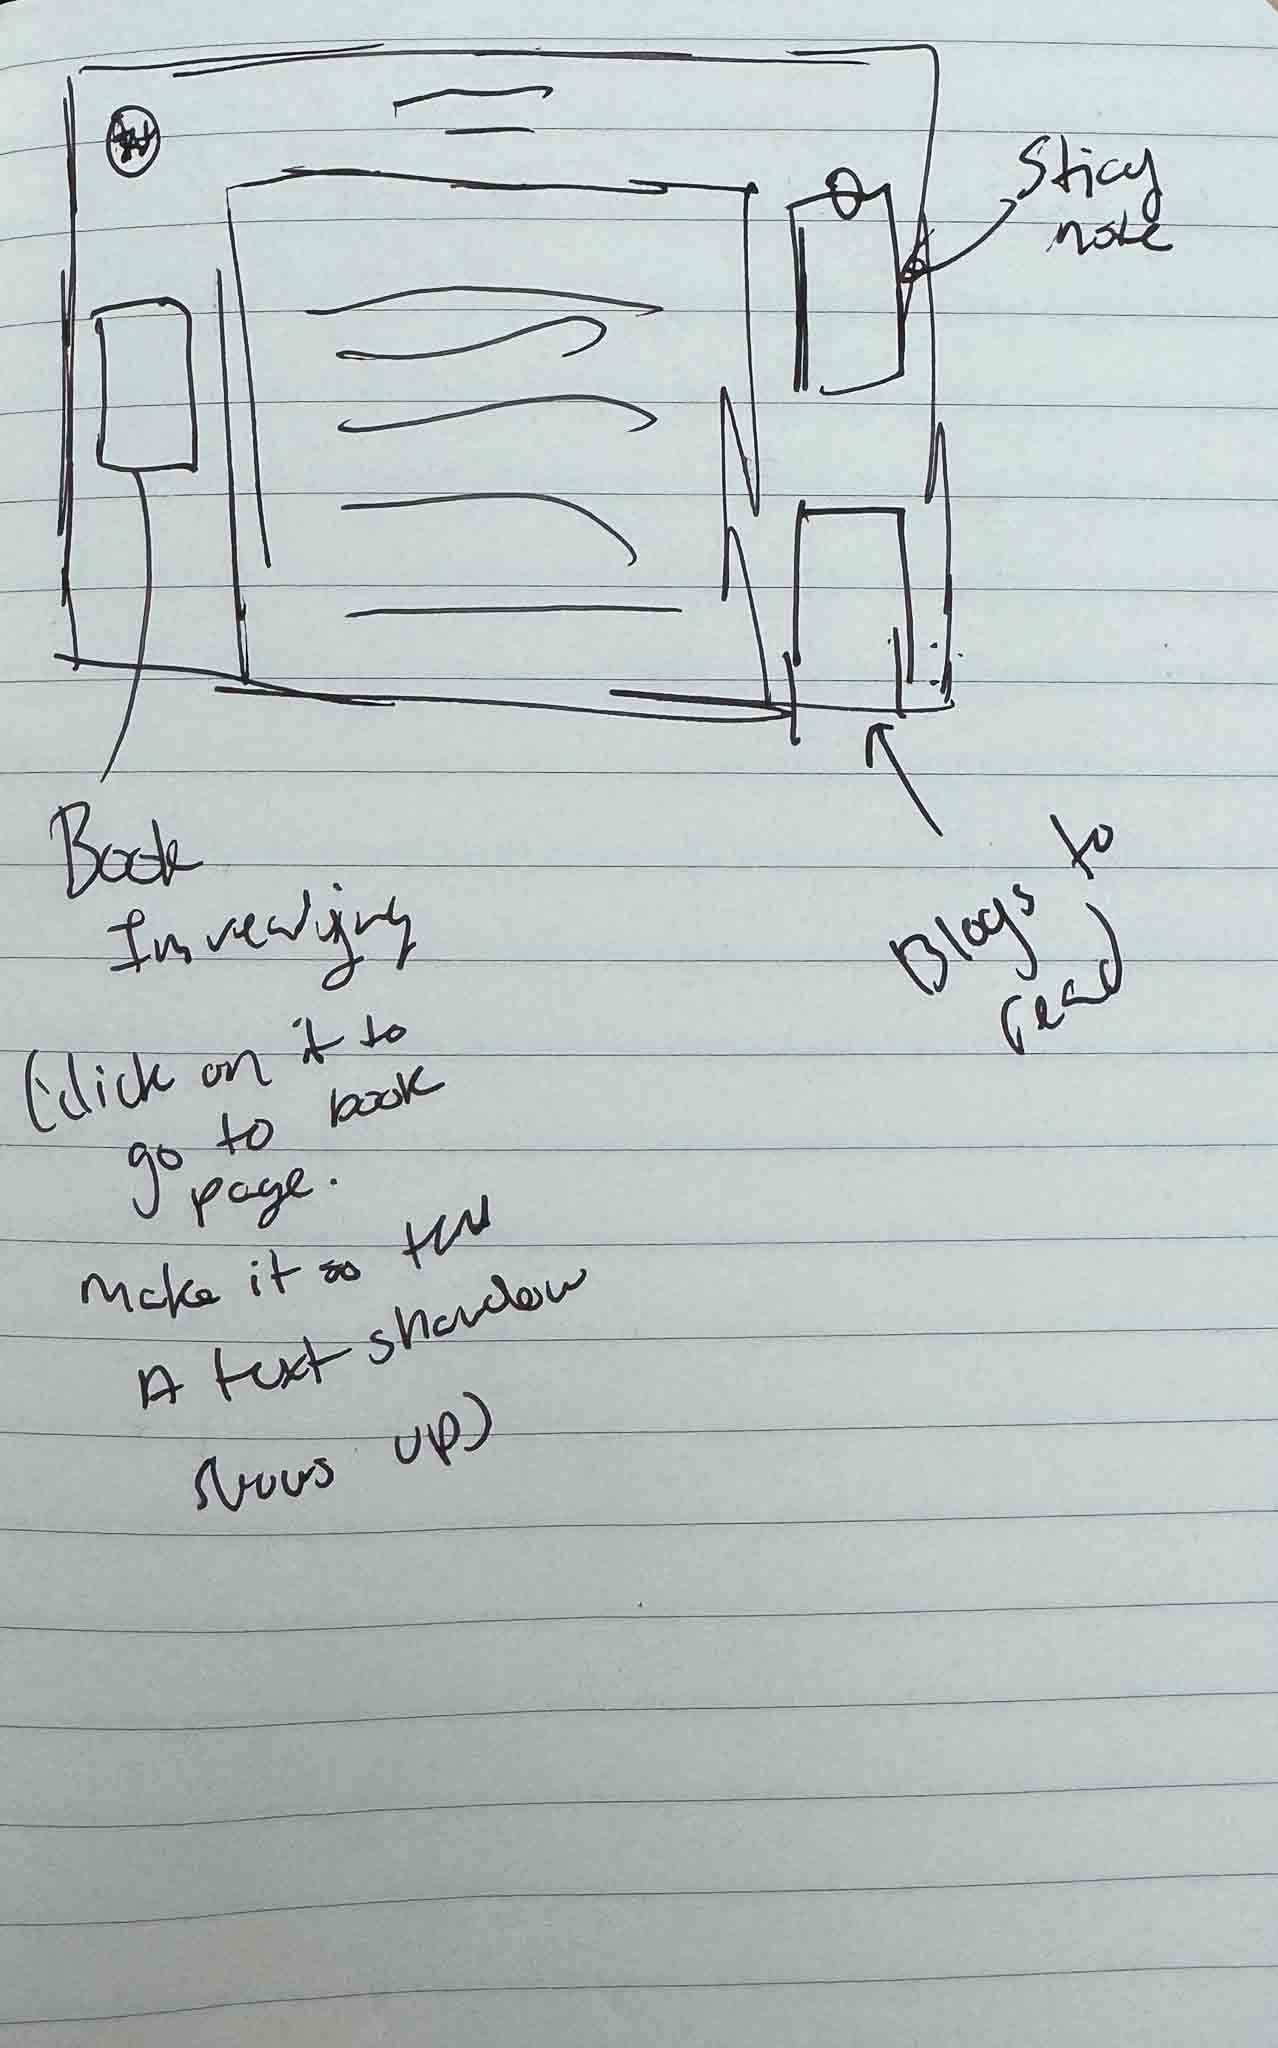 Sticy
note
Book
Im readijng
(click on it to
go to book
page.
make it so
A text shandow
shows up)
Blogs to
read